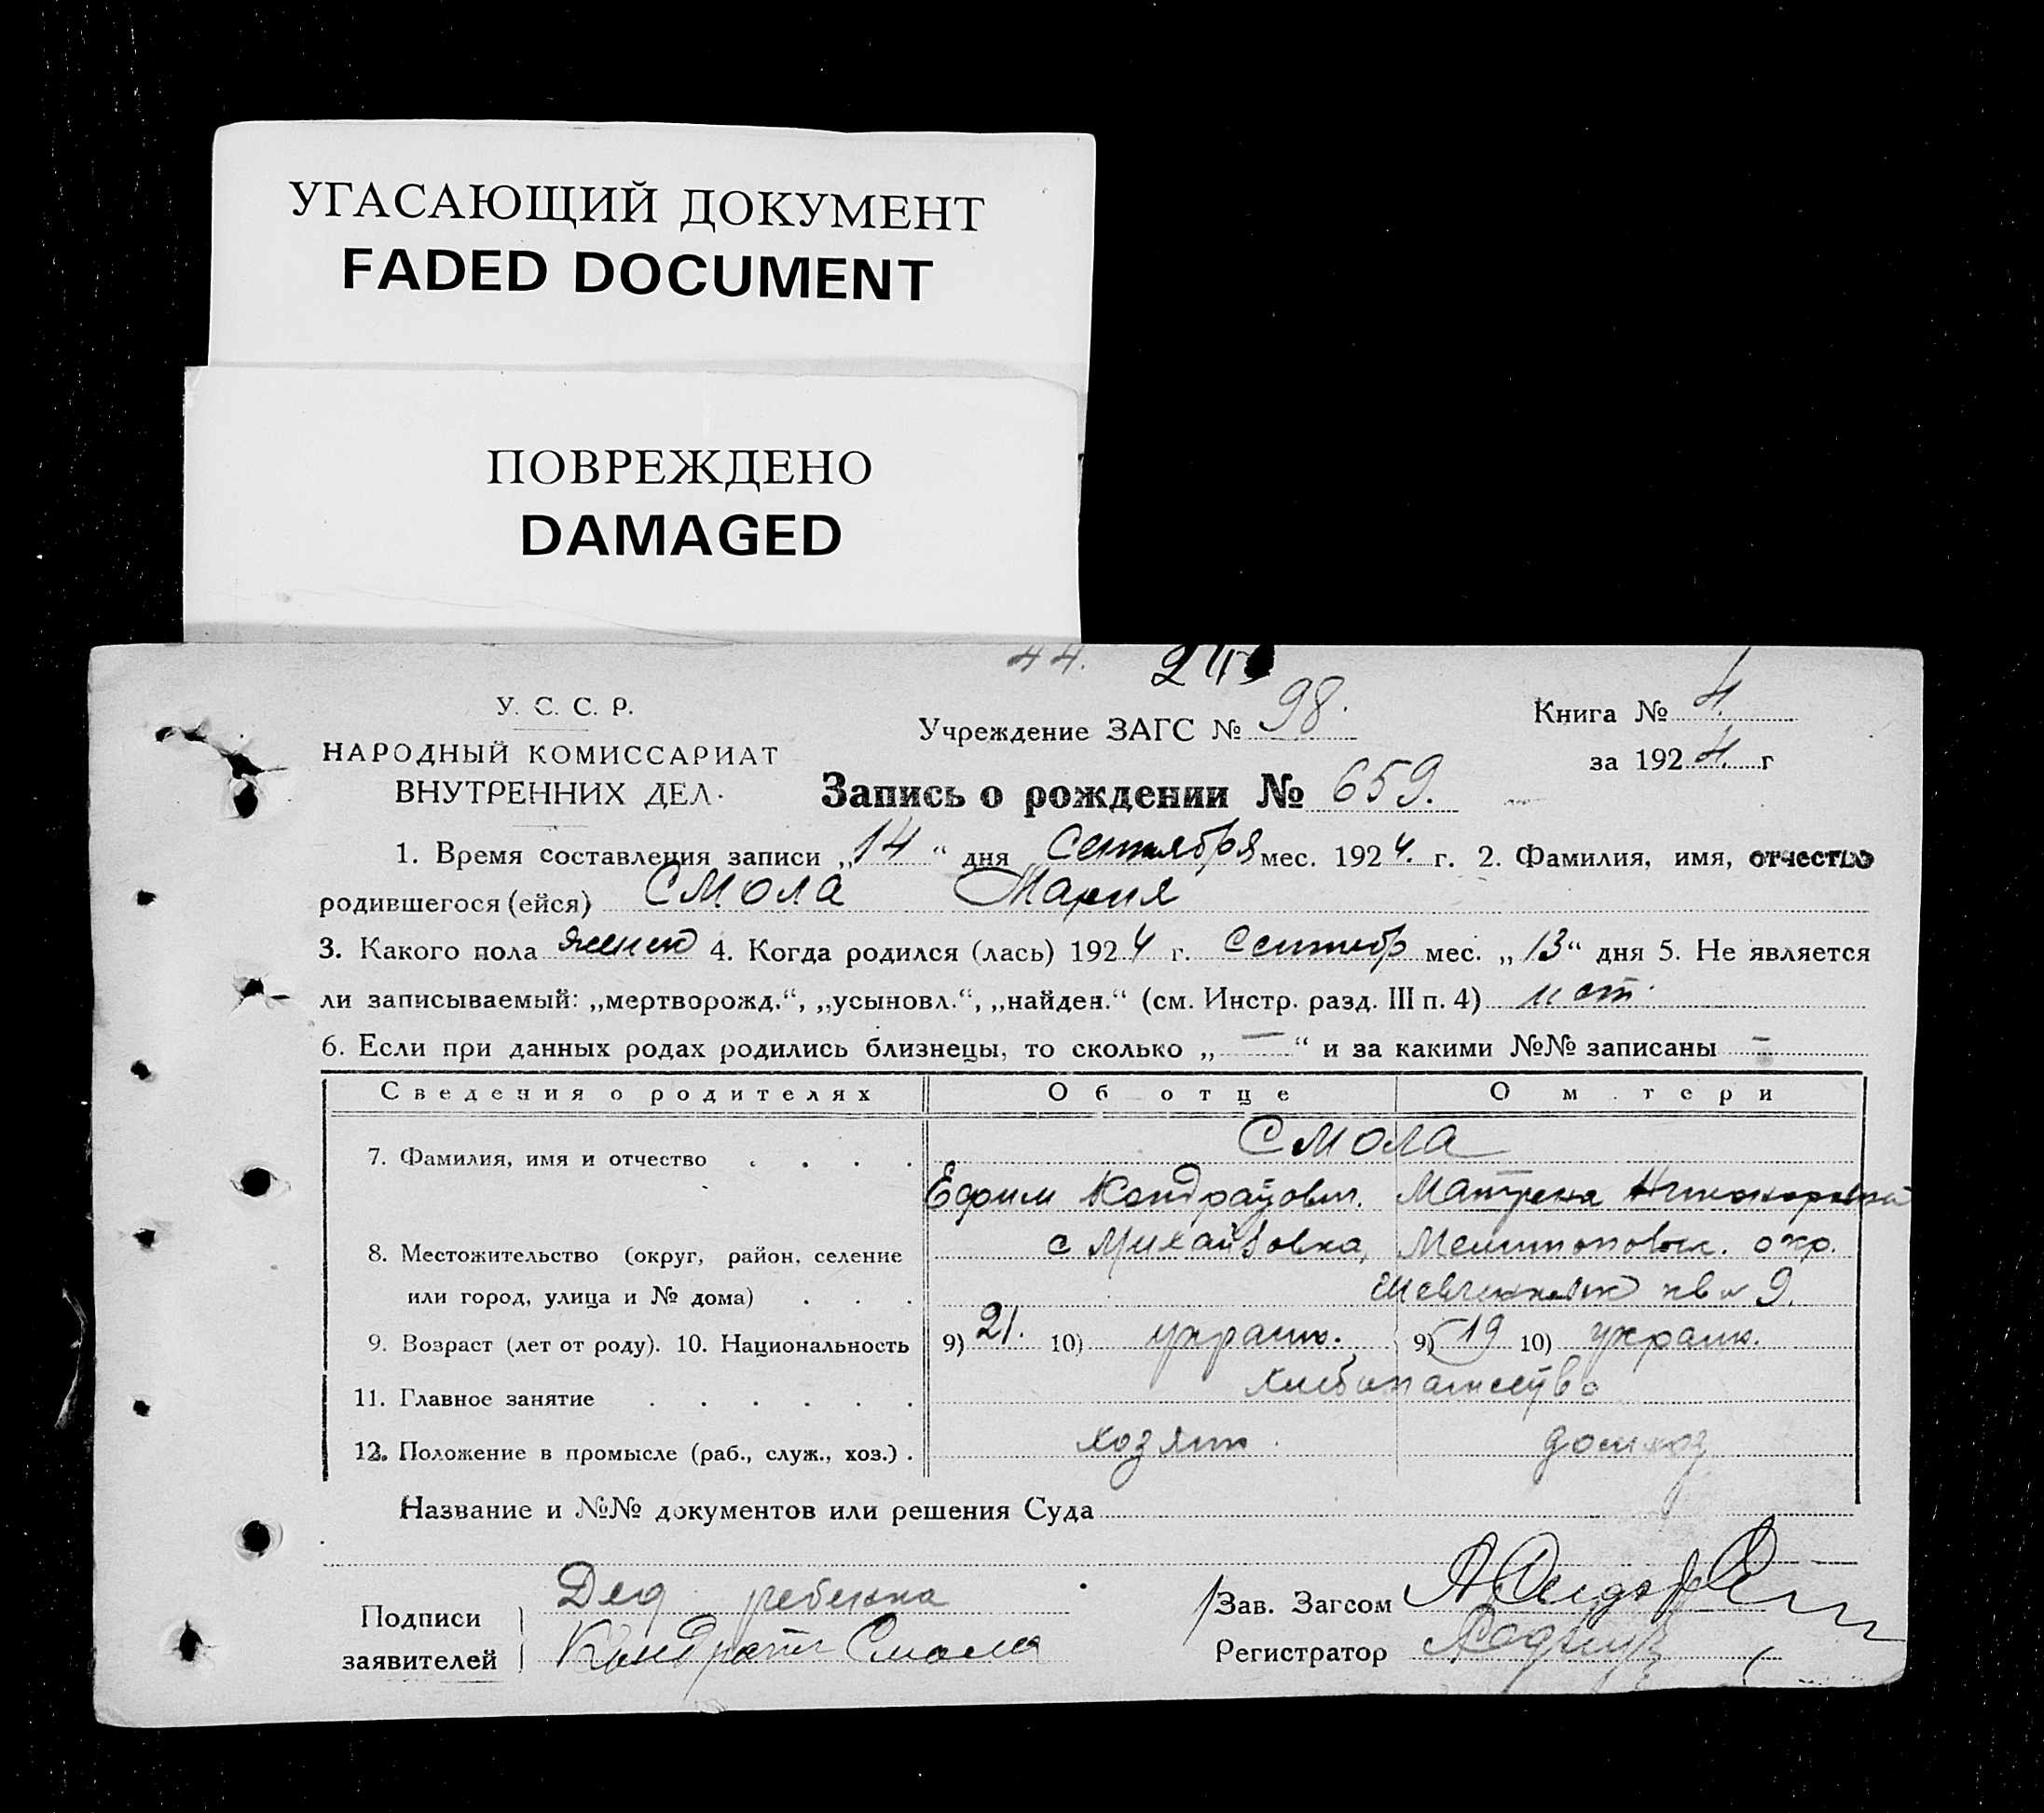 УГАСАЮЩИЙ ДОКУМЕНТ
FADED DOCUMENT
ПОВРЕЖДЕНО
DAMAGED
44.
У. С. С. Р.
НАРОДНЫЙ КОМИССАРИАТ
ВНУТРЕННИХ ДЕЛ.
Учреждение ЗАГС № 98.
Книга № 4.
за 1924. г
Запись о рождении № 659.
1. Время составления записи „14“ дня Сентября мес. 1924. г. 2. Фамилия, имя, отчество
родившегося (ейся) Смола Мария
3. Какого пола женск 4. Когда родился (лась) 1924 г. Сентябр мес. „13“ дня 5. Не является
ли записываемый: „мертворожд.“, „усыновл.“, „найден.“ (см. Инстр. разд. III п. 4) нет.
6. Если при данных родах родились близнецы, то сколько „—“ и за какими №№ записаны —
Сведения о родителях Об отце О м тери
7. Фамилия, имя и отчество . . . . Смола
Ефим Кондратович. Матрена
8. Местожительство (округ, район, селение с Михайловка, Мелитопольск. окр.
или город, улица и № дома) . . . Шевченковск кв 9.
9. Возраст (лет от роду). 10. Национальность 9) 21. 10) украин. 9) 19 10) украин.
11. Главное занятие . . . . . . хлибопашество
12. Положение в промысле (раб., служ., хоз.) . хозяин. домхоз
Название и №№ документов или решения Суда
Подписи заявителей
Дед ребенка
Кондрат Смола
Зав. Загсом
Регистратор